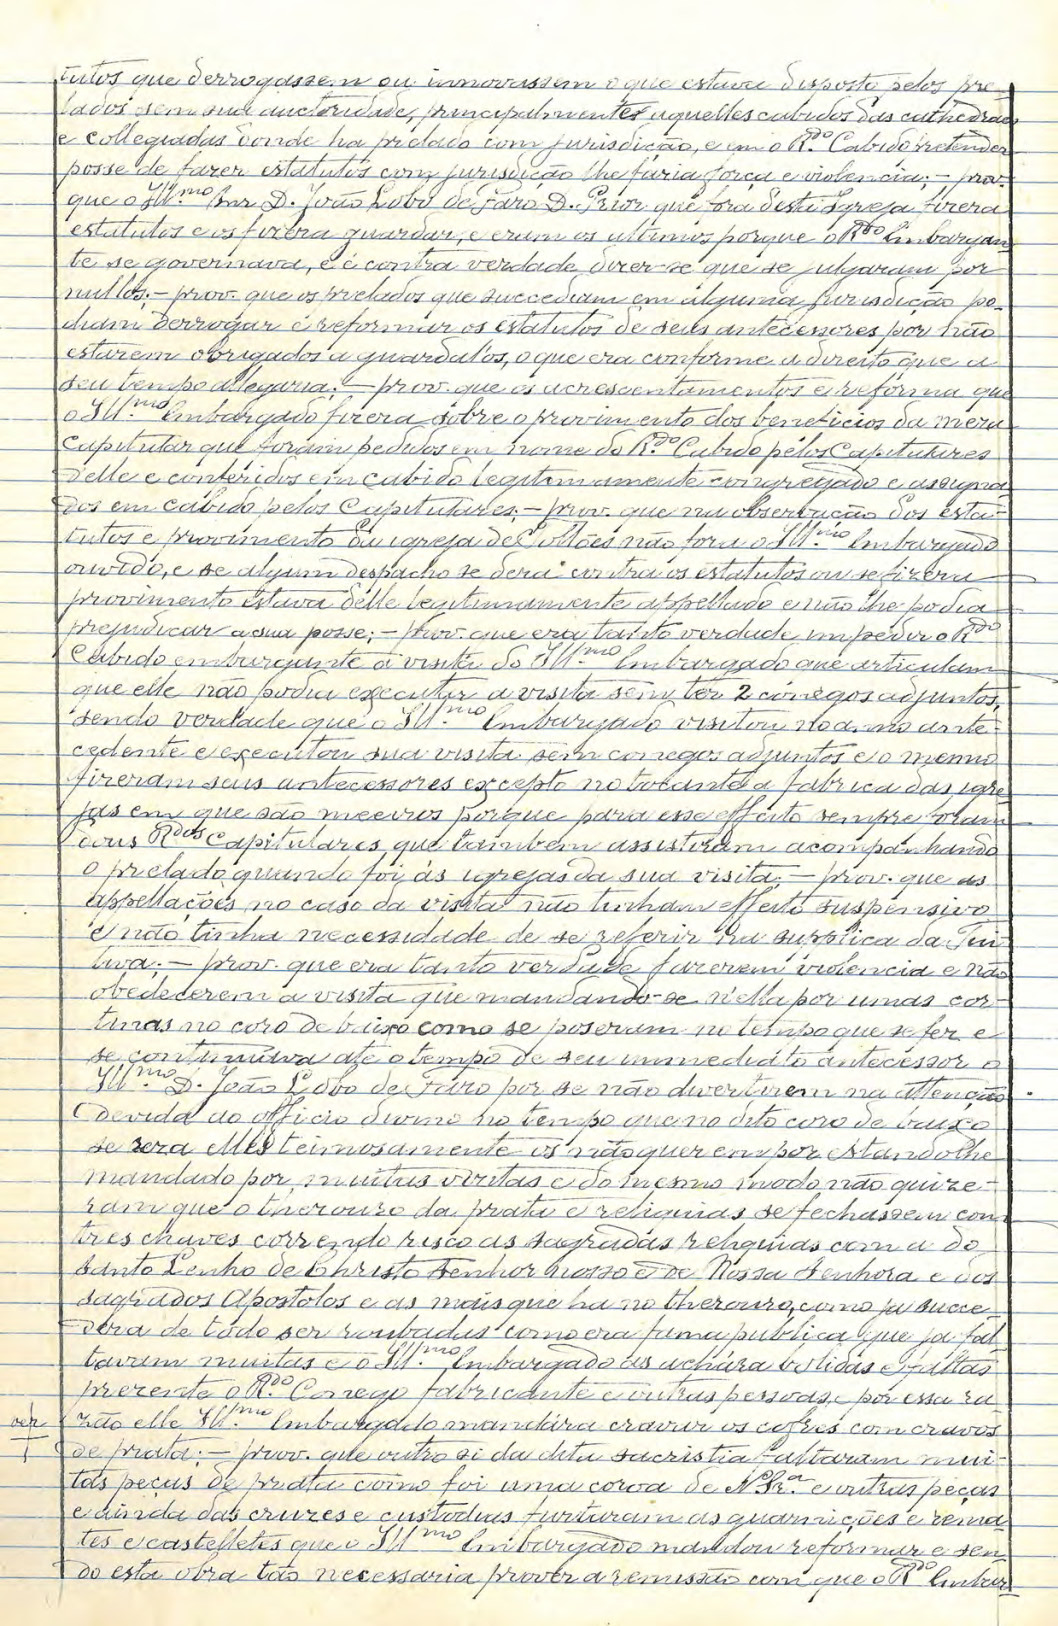 tutos que derrogassem ou innovassem o que estava disposto pelos pre-
lados sem sua auctoridade, principalmente aquelles cabidos das cathedraes
e collegiadas donde ha prelado com jurisdição, e em o R.do Cabido pretender
posse de fazer estatutos com jurisdição lhe faria força e violencia; – prov.
que o Ill.mo Snr D. João Lobo de Faro D. Prior que fora desta Igreja fizera
estatutos e os fizera guardar, e eram os ultimos porque o R.do Embargan
te se governava, e é contra verdade dizer-se que se julgaram por
nullos; – prov. que os prelados que succediam em alguma jurisdição po-
diam derrogar e reformar os estatutos de seus antecessores por não
estarem obrigados a guardal'os, o que era conforme a direito que a
seu tempo allegaria; – prov. que os acrescentamentos e reforma que
o Ill.mo Embargado fizera sobre o provimento dos beneficios da meza
capitular que foram pedidos em nome do R.do Cabido pelos Capitulares
delle e conferidos em cabido legitimamente congregado e assigna-
dos em cabido pelos Capitulares; – prov. que na observação dos esta-
tutos e provimento da igreja de não fora o Ill.mo Embargado
ouvido, e se algum despacho se dera contra os estatutos ou se fizera
provimento estava delle legitimamente appellado e não lhe podia
prejudicar a sua posse; – prov. que era tanto verdade impedir o R.do
Cabido embargante a visita do Ill.mo Embargado que articulam
que elle não podia executar a visita sem ter 2 conegos adjuntos,
sendo verdade que o Ill.mo Embargado visitou no anno ante-
cedente e executou sua visita sem conegos adjuntos e o mesmo
fizeram seus antecessores excepto no tocante a fabrica das igre
jas em que são meeiros porque para esse effeito sempre foram
dous R.dos Capitulares que tambem assistiram acompanhando
o prelado quando foi ás igrejas da sua visita; – prov. que as
appellações no caso da visita não tinham effeito suspensivo
e não tinha necessidade de se referir na supplica da Tui
tiva; – prov. que era tanto verdade fazerem violencia e não
obedecerem a visita que mandando-se n'ella por umas cor-
tinas no coro de baixo como se poseram no tempo que se fez e
se continuava até o tempo de seu immediato antecessor o
Ill.mo D. João Lobo de Faro por se não divertirem na attenção
devida ao officio divino no tempo que no dito coro de baixo
se reza elles teimosamente os não querem por estando lhe
mandado por muitas visitas e do mesmo modo não quize-
ram que o thezouro da prata e reliquias se fechassem com
tres chaves correndo risco as sagradas reliquias com a do
Santo Lenho de Christo Senhor nosso e de Nossa Senhora e dos
sagrados Apostolos e as mais que ha no thezouro, como ja succe
dera de todo ser roubadas como era fama publica que ja fal
tavam muitas e o Ill.mo Embargado as achára bolidas e faltas
prezente o R.do Conego fabricante e outras pessoas, e por essa ra
ver zão elle Ill.mo Embargado mandára cravar os cofres com cravos
de prata; – prov. que outro si da dita sacristia faltaram mui-
tas peças de prata como foi uma coroa de N. Sr.a e outras peças
e ainda das cruzes e custodias furtaram as guarnições e rema
tes e castelletes que o Ill.mo Embargado mandou reformar e sen-
do esta obra tão necessaria prover a remissão com que o R.do Embar